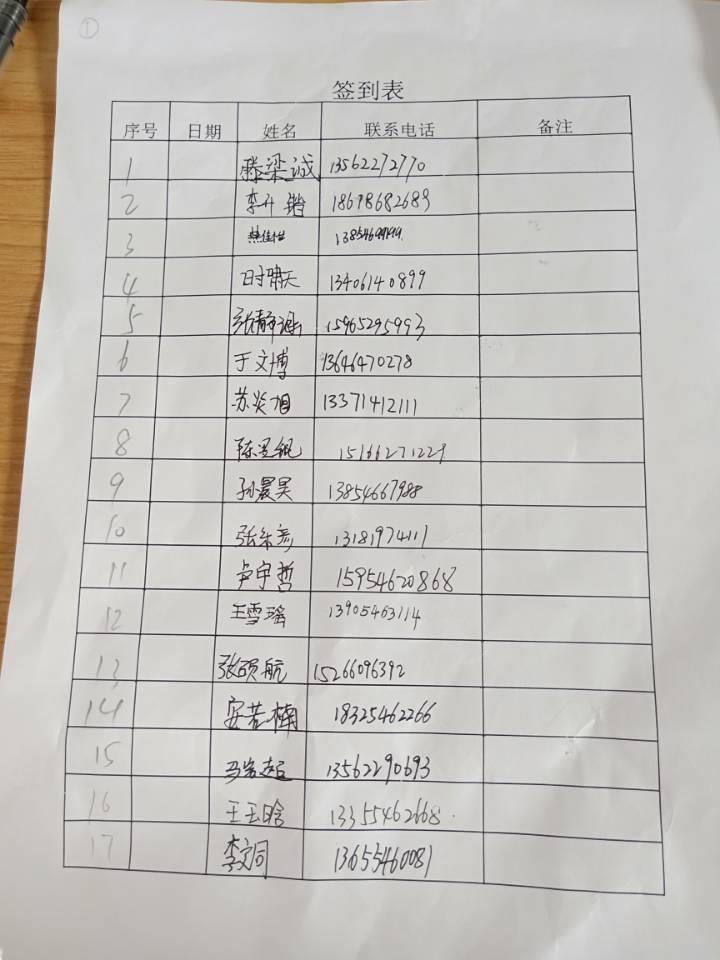 ①
签到表
序号 日期 姓名 联系电话 备注
1 滕梁诚 13562272770
2 李升锴 18678682689
3
4 时啸天 13406140899
5 张静涵 15965295993
6 于文博 13646470278
7 苏炎旭 13371412111
8 陈昱锟 15166271229
9 孙晨昊 13854667988
10 张 13181974111
11 卢宇哲 15954620868
12 王雪瑶 13905463114
13 张硕航 15266096392
14 安若楠 18325462266
15 马 超 13562290693
16 王玉晗 13355462668
17 李文同 13655460081